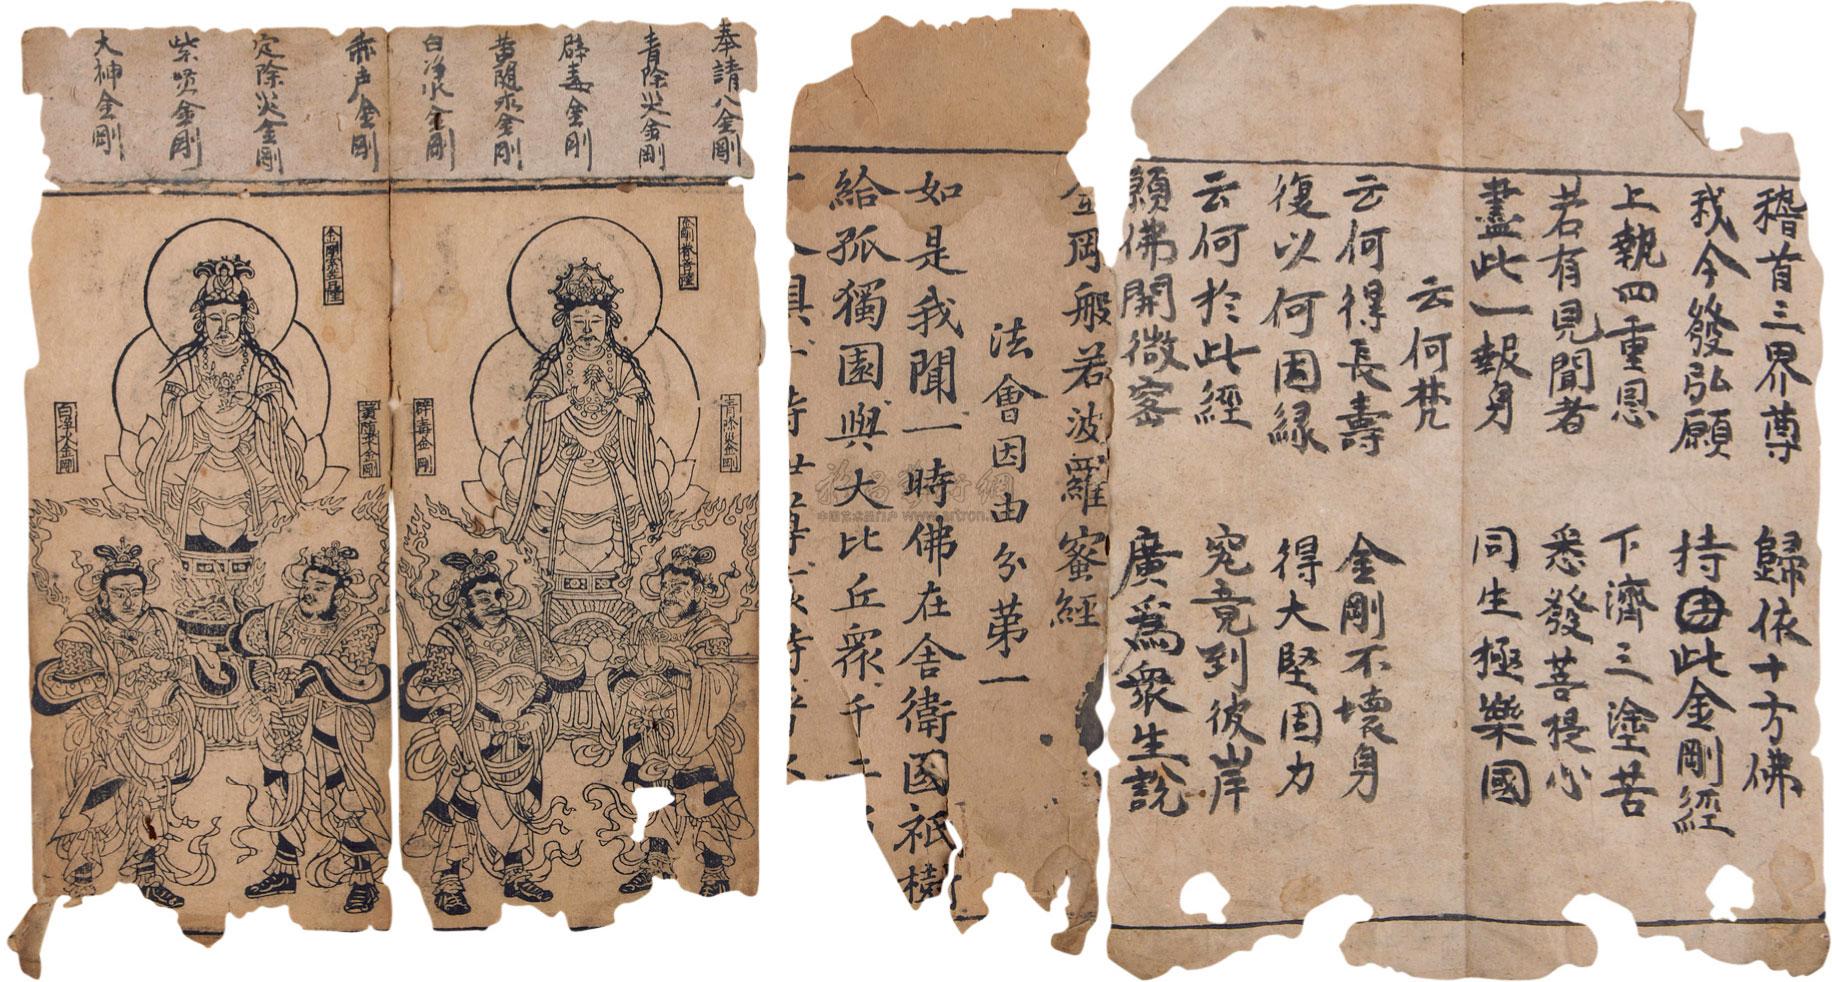 奉請八金剛
青除災金剛
辟毒金剛
黄随求金剛
白净水金剛
赤声金剛
定除災金剛
紫贤金剛
大神金剛
青除災金剛
辟毒金剛
金剛索菩薩
黄随求金剛
白淨水金剛
稽首三界尊 歸依十方佛
我今發弘願 持此金剛經
上執四重恩 下濟三塗苦
若有見聞者 悉發菩提心
盡此一報身 同生極樂國
云何梵
云何得長壽 金剛不壞身
復以何因緣 得大堅固力
云何於此經 究竟到彼岸
願佛開微密 廣爲衆生說
金剛般若波羅蜜經
法會因由分苐一
如是我聞一時佛在舍衛國祇樹
給孤獨園與大比丘衆千二